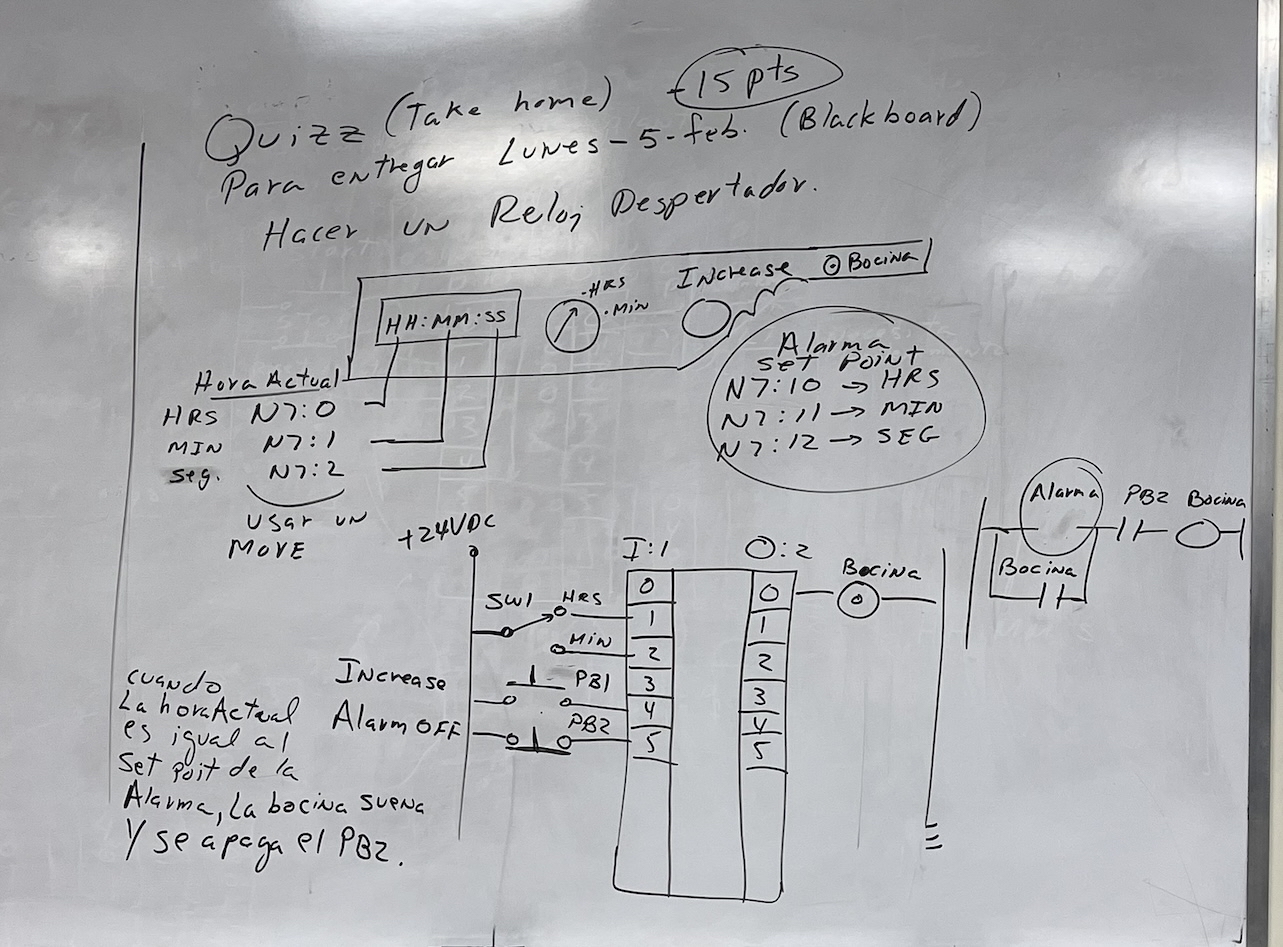 Quizz (Take home) -15 pts
Para entregar Lunes-5-feb. (Blackboard)
Hacer un Reloj Despertador.
HH:MM:SS
·HRS
·Min
Increase
Bocina
Hora Actual
HRS N7:0
MIN N7:1
seg. N7:2
Usar un
MOVE
Alarma
Set Point
N7:10 → HRS
N7:11 → MIN
N7:12 → SEG
Alarma PB2 Bocina
Bocina
+24VDC
I:1
O:2
SW1 HRS
Min
Increase PB1
Alarm OFF PB2
0
1
2
3
4
5
0
1
2
3
4
5
Bocina
cuando
La hora Actual
es igual al
Set Poit de la
Alarma, La bocina suena
Y se apaga el PB2.